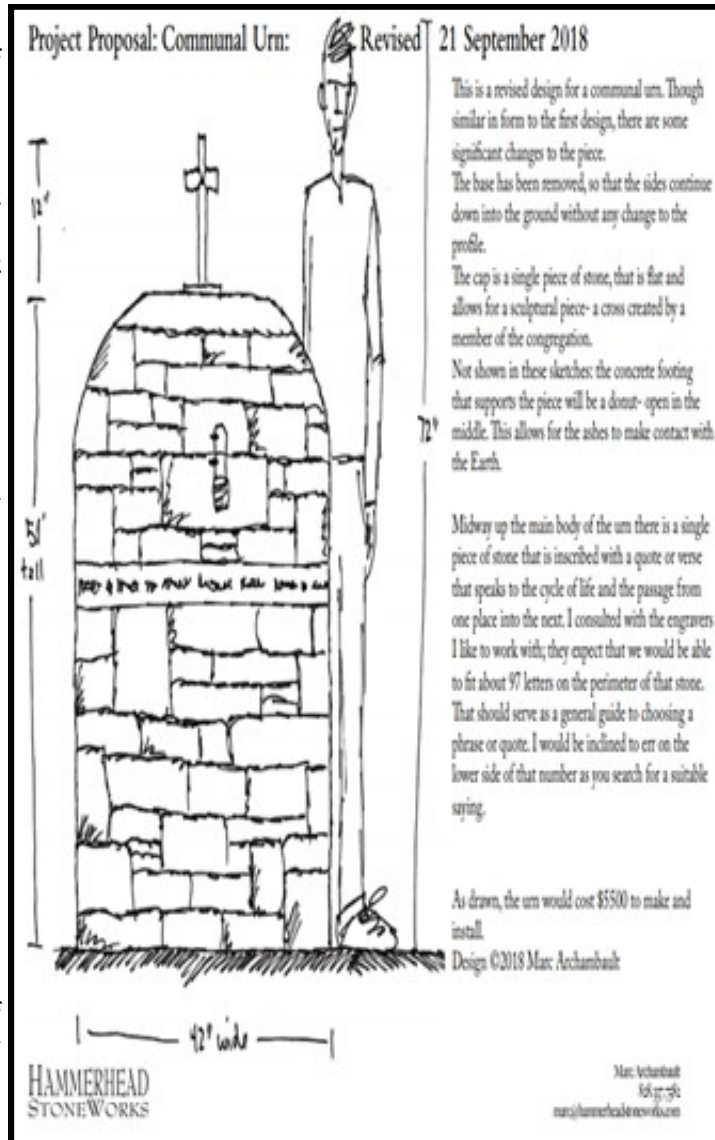 Project Proposal: Communal Urn: Revised 21 September 2018
This is a revised design for a communal urn. Though
similar in form to the first design, there are some
significant changes to the piece.
The base has been removed, so that the sides continue
down into the ground without any change to the
profile.
The cap is a single piece of stone, that is flat and
allows for a sculptural piece- a cross created by a
member of the congregation.
Not shown in these sketches: the concrete footing
that supports the piece will be a donut- open in the
middle. This allows for the ashes to make contact with
the Earth.
Midway up the main body of the urn there is a single
piece of stone that is inscribed with a quote or verse
that speaks to the cycle of life and the passage from
one place into the next. I consulted with the engravers
I like to work with; they expect that we would be able
to fit about 97 letters on the perimeter of that stone.
That should serve as a general guide to choosing a
phrase or quote. I would be inclined to err on the
lower side of that number as you search for a suitable
saying.
As drawn, the urn would cost $5500 to make and
install.
Design ©2018 Marc Archambault
12"
72"
tall
42" wide
HAMMERHEAD
STONEWORKS
Marc Archambault
marc@hammerheadstoneworks.com